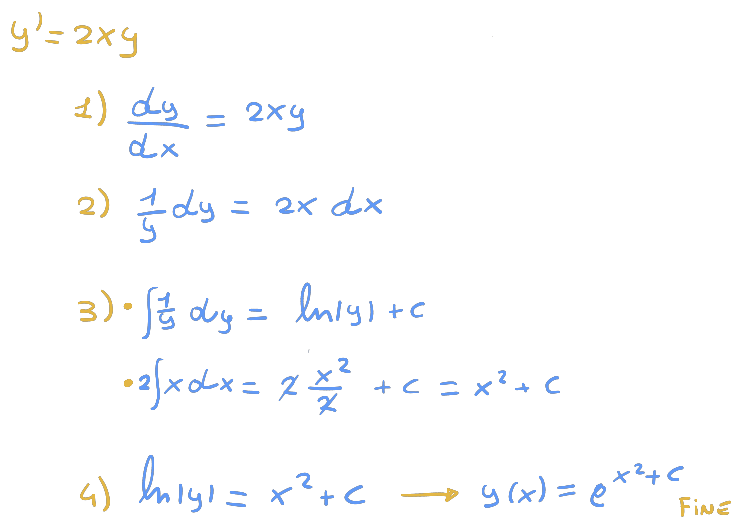 y' = 2xy
1) dy/dx = 2xy
2) 1/y dy = 2x dx
3) • ∫ 1/y dy = ln|y| + c
• 2∫x dx = 2 x²/2 + c = x² + c
4) ln|y| = x² + c → y(x) = e^(x²+c)
FINE